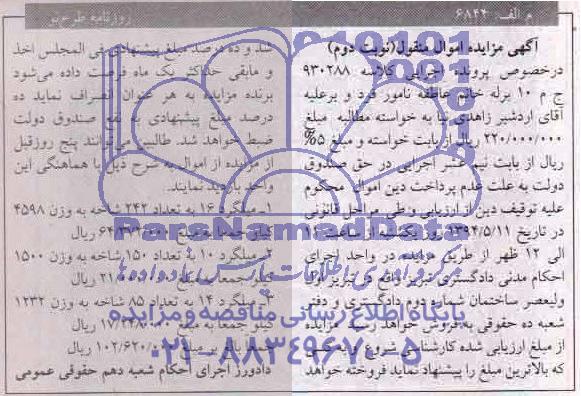 م الف: ۶۸۴۴
روزنامه طرح نو
آگهی مزایده اموال منقول(نوبت دوم)
درخصوص پرونده اجرایی کلاسه ۹۳۰۲۸۸
ج م ۱۰ برله خانم عاطفه نامور فرد و برعلیه
آقای اردشیر زاهدی نیا به خواسته مطالبه مبلغ
۲۲۰/۰۰۰/۰۰۰ ریال از بابت خواسته و مبلغ ۵%
ریال از بابت نیم عشر اجرایی در حق صندوق
دولت به علت عدم پرداخت دین اموال محکوم
علیه توقیف و پس از ارزیابی وطی مراحل قانونی
در تاریخ ۱۳۹۴/۵/۱۱ روز یکشنبه از ساعت ۱۱
الی ۱۲ ظهر از طریق مزایده در واحد اجرای
احکام مدنی دادگستری تبریز واقع در تبریز اول
ولیعصر ساختمان شماره دوم دادگستری و دفتر
شعبه ده حقوقی به فروش خواهد رسید مزایده
از مبلغ ارزیابی شده کارشناسی شروع و به کسی
که بالاترین مبلغ را پیشنهاد نماید فروخته خواهد
شد و ده درصد مبلغ پیشنهادی فی المجلس اخذ
و مابقی حداکثر یک ماه فرصت داده می‌شود
برنده مزایده به هر عنوان انصراف نماید ده
درصد مبلغ پیشنهادی به نفع صندوق دولت
ضبط خواهد شد. طالبین می‌توانند پنج روزقبل
از مزایده از اموال به شرح ذیل با هماهنگی این
واحد بازدید نمایند.
۱ـ میلگرد ۱۶ به تعداد ۲۴۲ شاخه به وزن ۴۵۹۸
کیلو جمعا به مبلغ ریال
۲ـ میلگرد ۱۰ به تعداد ۱۵۰ شاخه به وزن ۱۵۰۰
کیلو جمعا به مبلغ ریال
۳ـ میلگرد ۱۴ به تعداد ۸۵ شاخه به وزن ۱۲۳۲
کیلو جمعا به مبلغ ریال
جمعا به مبلغ ریال
دادورز اجرای احکام شعبه دهم حقوقی عمومی
ParsNamadData
مرکز فرآوری اطلاعات پارس نماد داده ها
پایگاه اطلاع رسانی مناقصه و مزایده
۰۲۱-۸۸۳۴۹۶۷۰-۵